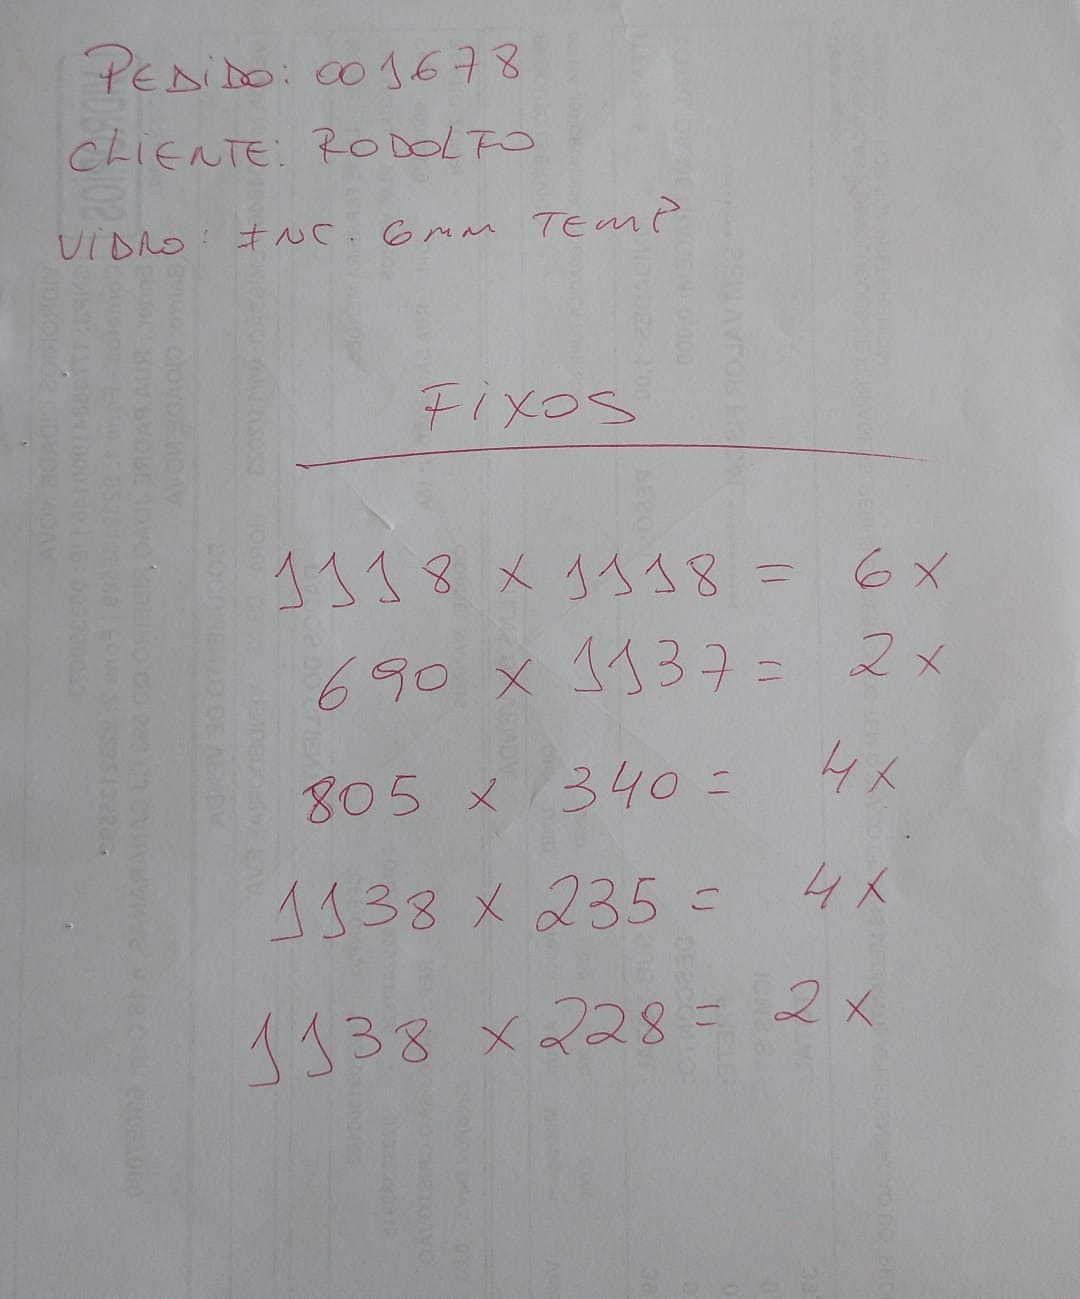 PEDIDO: 001678
CLIENTE: RODOLFO
VIDRO: INC. 6mm TEMP
FIXOS
1118 x 1118 = 6x
690 x 1137 = 2x
805 x 340 = 4x
1138 x 235 = 4x
1138 x 228 = 2x